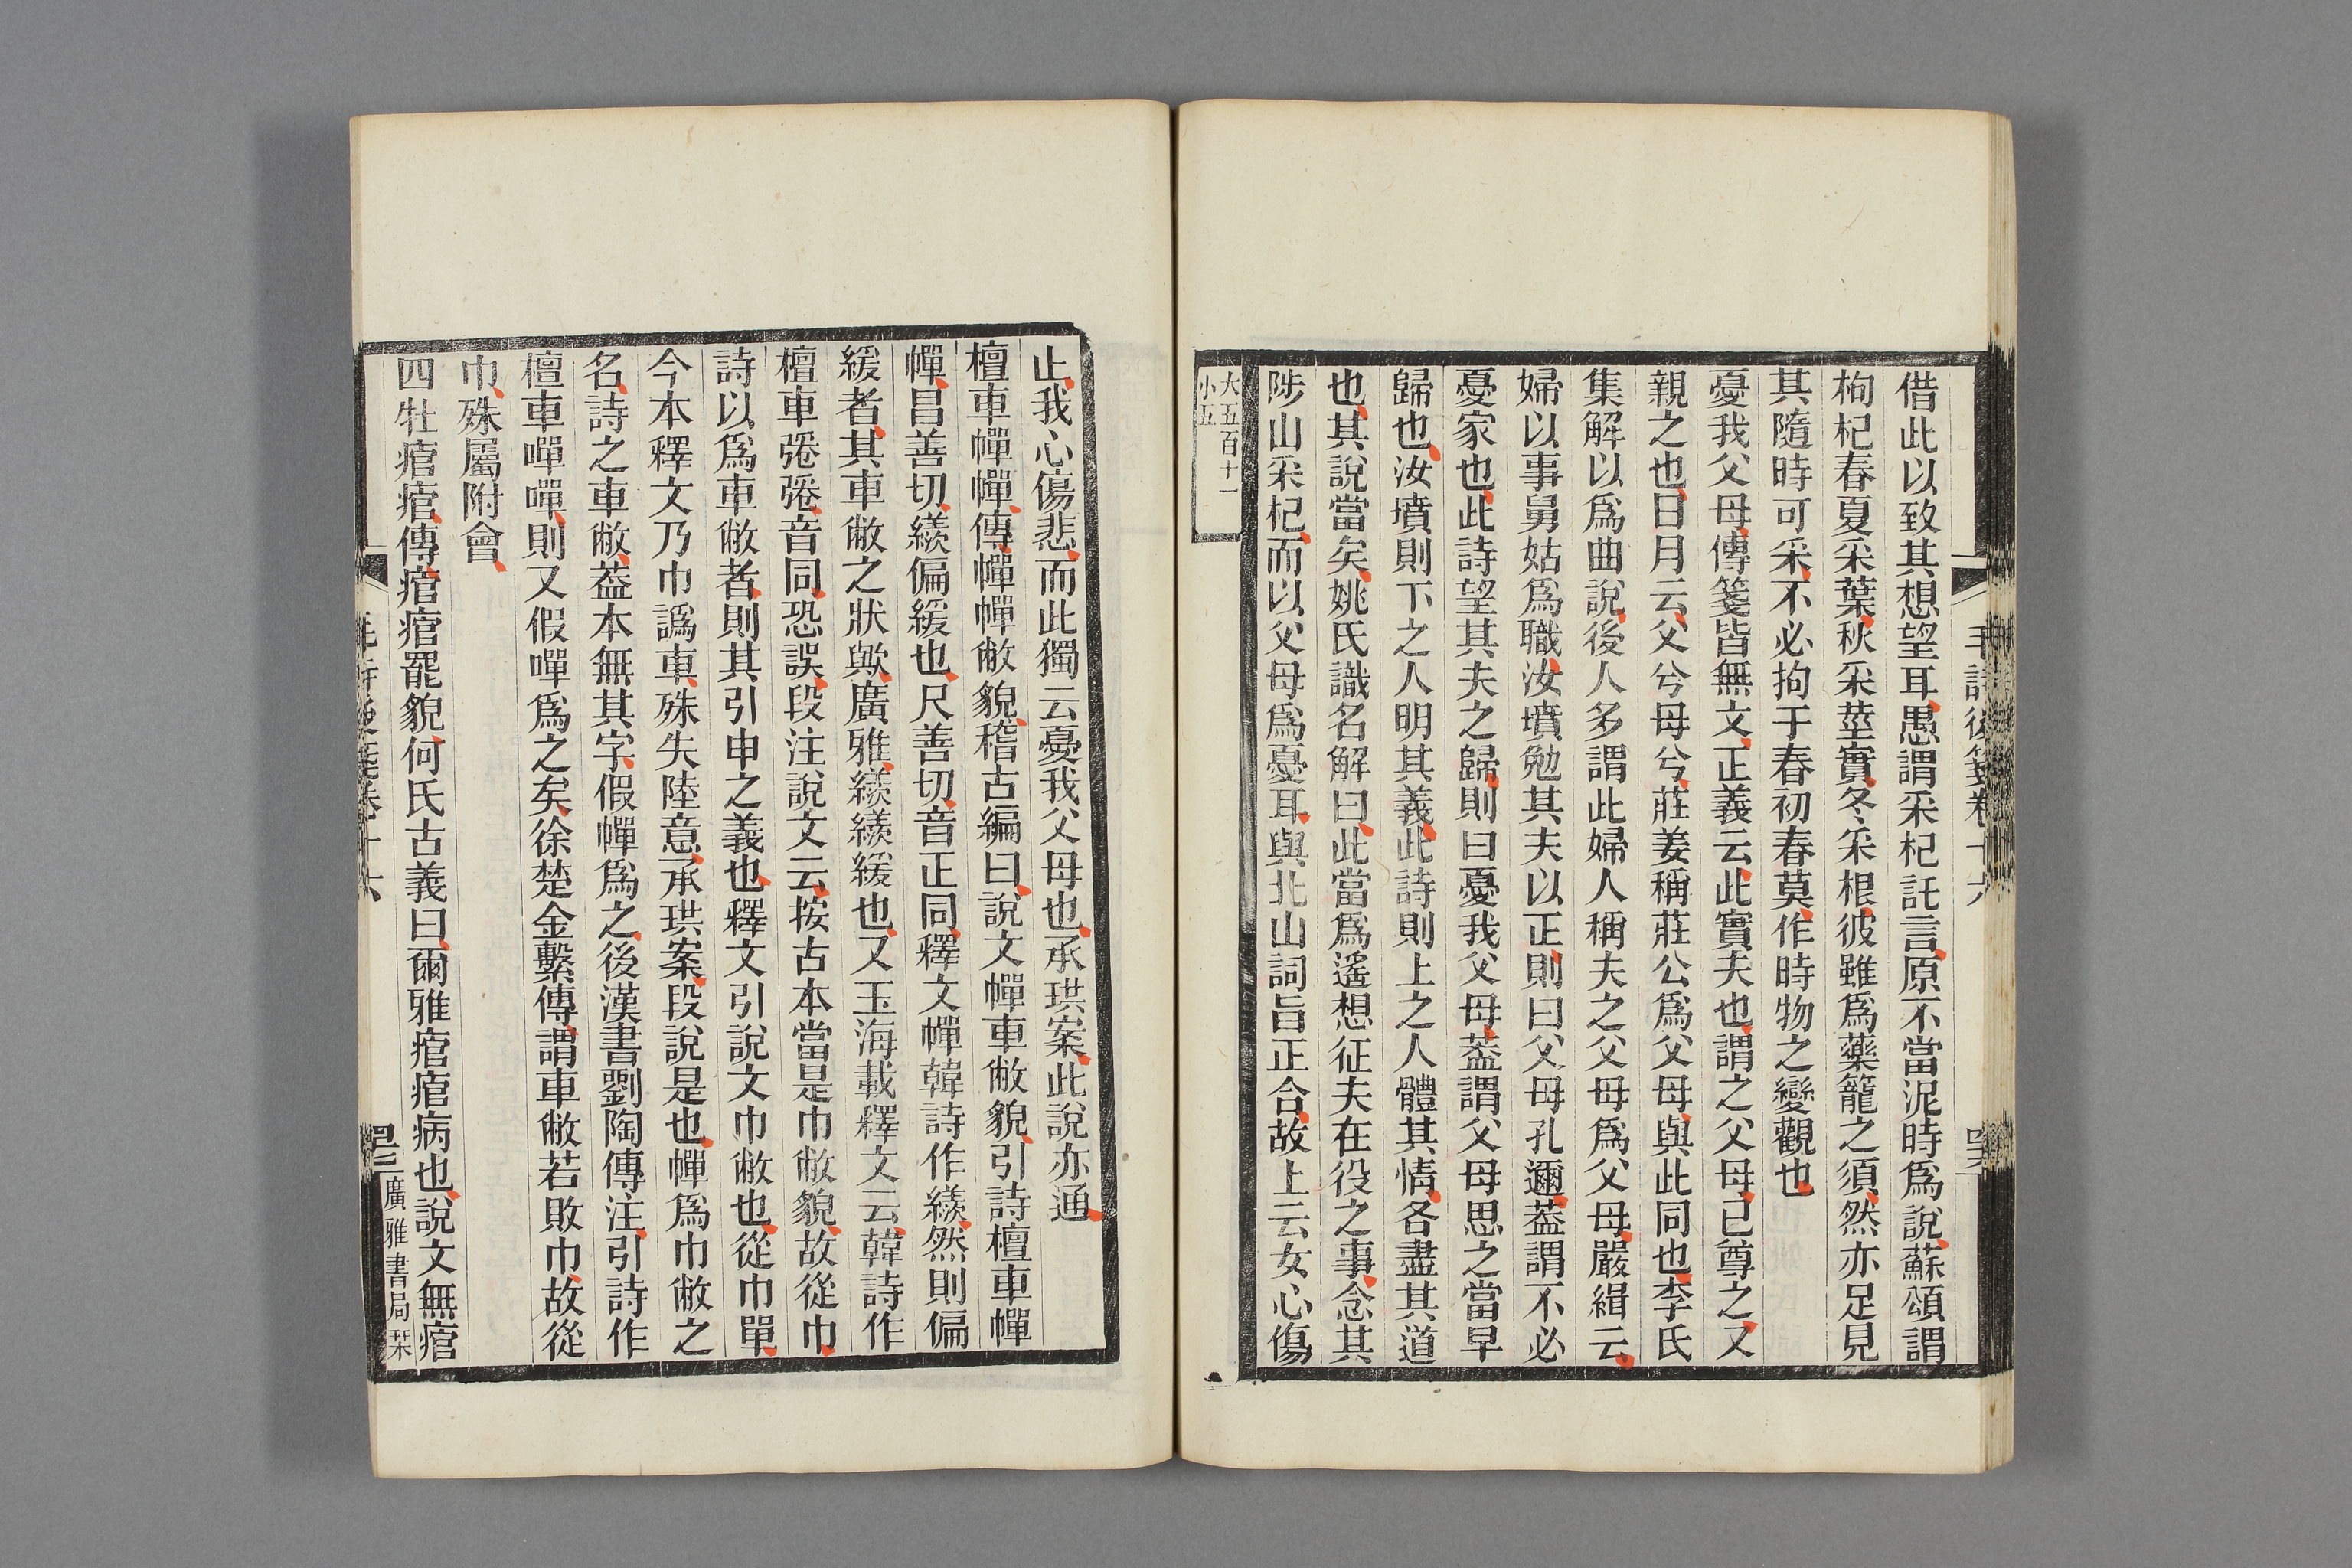 借此以致其想望耳愚謂采杞託言原不當泥時爲說蘇頌謂
枸杞春夏采葉秋采莖實冬采根彼雖爲藥籠之須然亦足見
其隨時可采不必拘于春初春莫作時物之變觀也
憂我父母傳箋皆無文正義云此實夫也謂之父母已尊之又
親之也日月云父兮母兮莊姜稱莊公爲父母與此同也李氏
集解以爲曲說後人多謂此婦人稱夫之父母爲父母嚴緝云
婦以事舅姑爲職汝墳勉其夫以正則曰父母孔邇葢謂不必
憂家也此詩望其夫之歸則曰憂我父母葢謂父母思之當早
歸也汝墳則下之人明其義此詩則上之人體其情各盡其道
也其說當矣姚氏識名解曰此當爲遙想征夫在役之事念其
陟山采杞而以父母爲憂耳與北山詞旨正合故上云女心傷
大五百十一
小五
止我心傷悲而此獨云憂我父母也承珙案此說亦通
檀車幝幝傳幝幝敝貌稽古編曰說文幝車敝貌引詩檀車幝
幝昌善切繎偏緩也尺善切音正同釋文幝韓詩作繎然則偏
緩者其車敝之狀歟廣雅繎繎緩也又玉海載釋文云韓詩作
檀車弮弮音同恐誤段注說文云按古本當是巾敝貌故從巾
詩以爲車敝者則其引申之義也釋文引說文巾敝也從巾單
今本釋文乃巾譌車殊失陸意承珙案段說是也幝爲巾敝之
名詩之車敝葢本無其字假幝爲之後漢書劉陶傳注引詩作
檀車嘽嘽則又假嘽爲之矣徐楚金繫傳謂車敝若敗巾故從
巾殊屬附會
四牡痯痯傳痯痯罷貌何氏古義曰爾雅痯痯病也說文無痯
毛詩後箋卷十六
廣雅書局栞